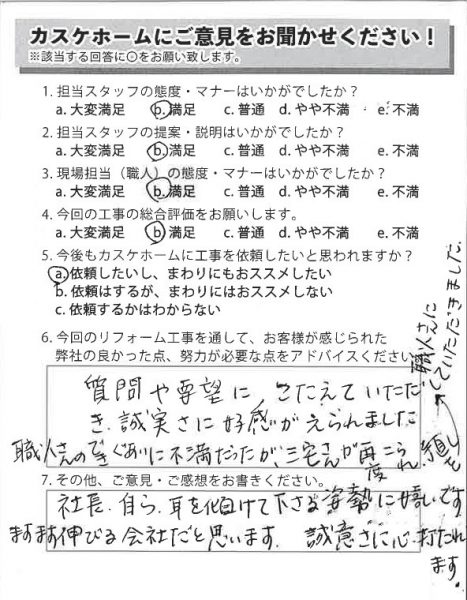 カスケホームにご意見をお聞かせください！
※該当する回答に○をお願い致します。
1. 担当スタッフの態度・マナーはいかがでしたか？
a. 大変満足 b. 満足 c. 普通 d. やや不満 e. 不満
2. 担当スタッフの提案・説明はいかがでしたか？
a. 大変満足 b. 満足 c. 普通 d. やや不満 e. 不満
3. 現場担当（職人）の態度・マナーはいかがでしたか？
a. 大変満足 b. 満足 c. 普通 d. やや不満 e. 不満
4. 今回の工事の総合評価をお願いします。
a. 大変満足 b. 満足 c. 普通 d. やや不満 e. 不満
5. 今後もカスケホームに工事を依頼したいと思われますか？
a. 依頼したいし、まわりにもおススメしたい
b. 依頼はするが、まわりにはおススメしない
c. 依頼するかはわからない
6. 今回のリフォーム工事を通して、お客様が感じられた
弊社の良かった点、努力が必要な点をアドバイスください
質問や要望に、こたえていただ
き、誠実さに好感がえられました
職人さんのできぐあいに不満だったが、三宅さんが再度こられ
直しを
職人さんに
していただきました。
7. その他、ご意見・ご感想をお書きください。
社長、自ら、耳を傾けて下さる姿勢に嬉いです
ますます伸びる会社だと思います。 誠意さに心打たれ
ます。